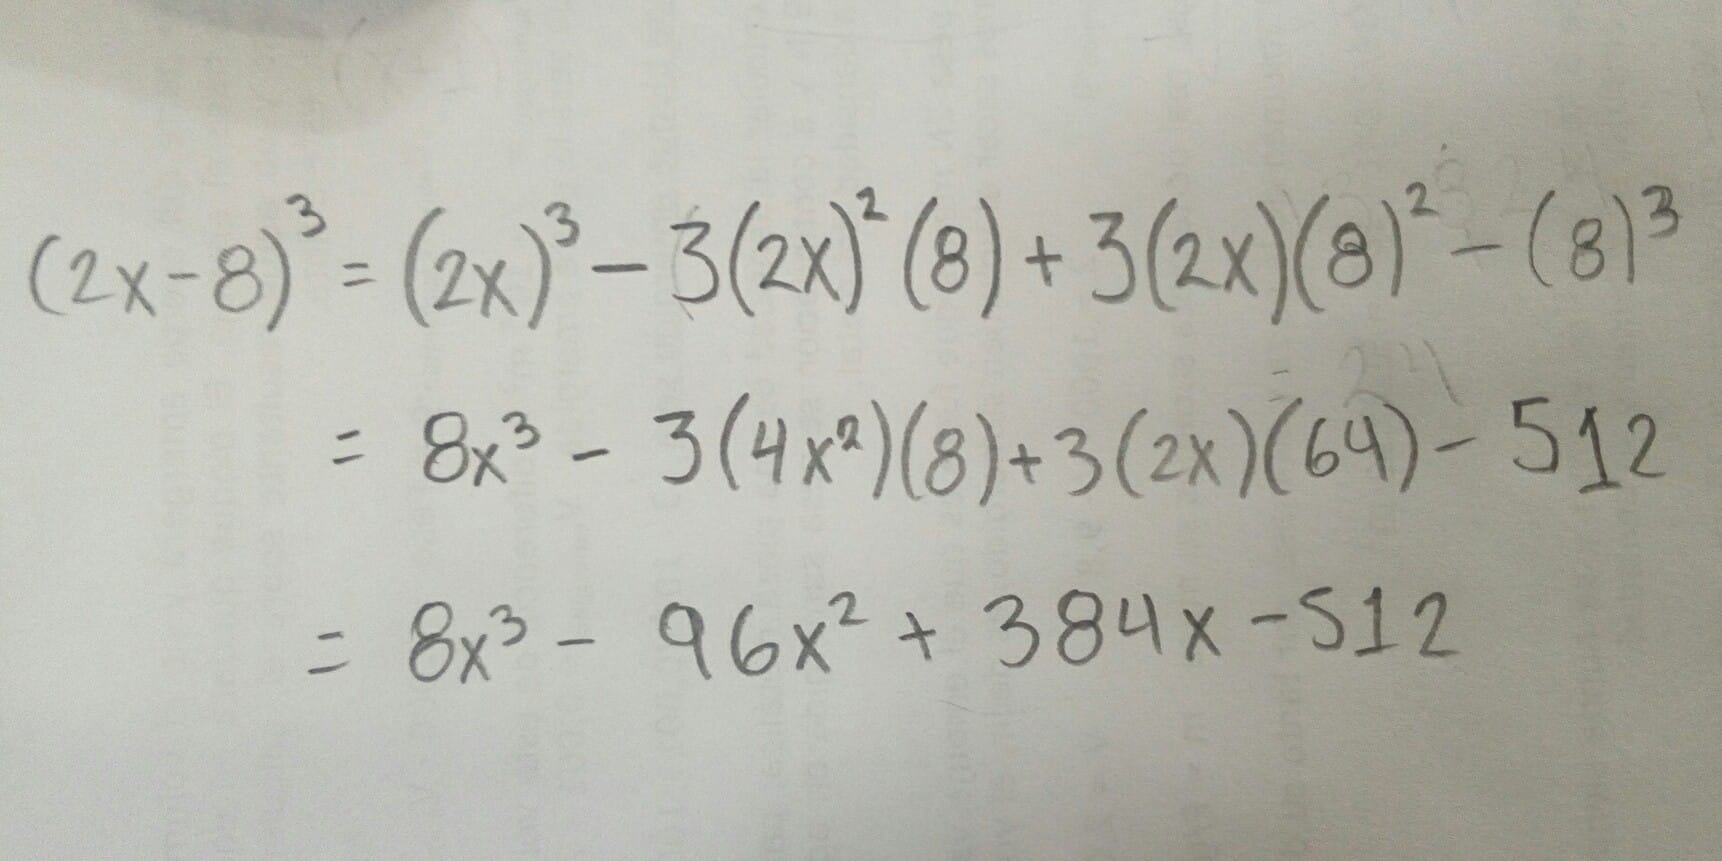 (2x-8)³ = (2x)³ - 3(2x)²(8) + 3(2x)(8)² - (8)³
= 8x³ - 3(4x²)(8) + 3(2x)(64) - 512
= 8x³ - 96x² + 384x - 512